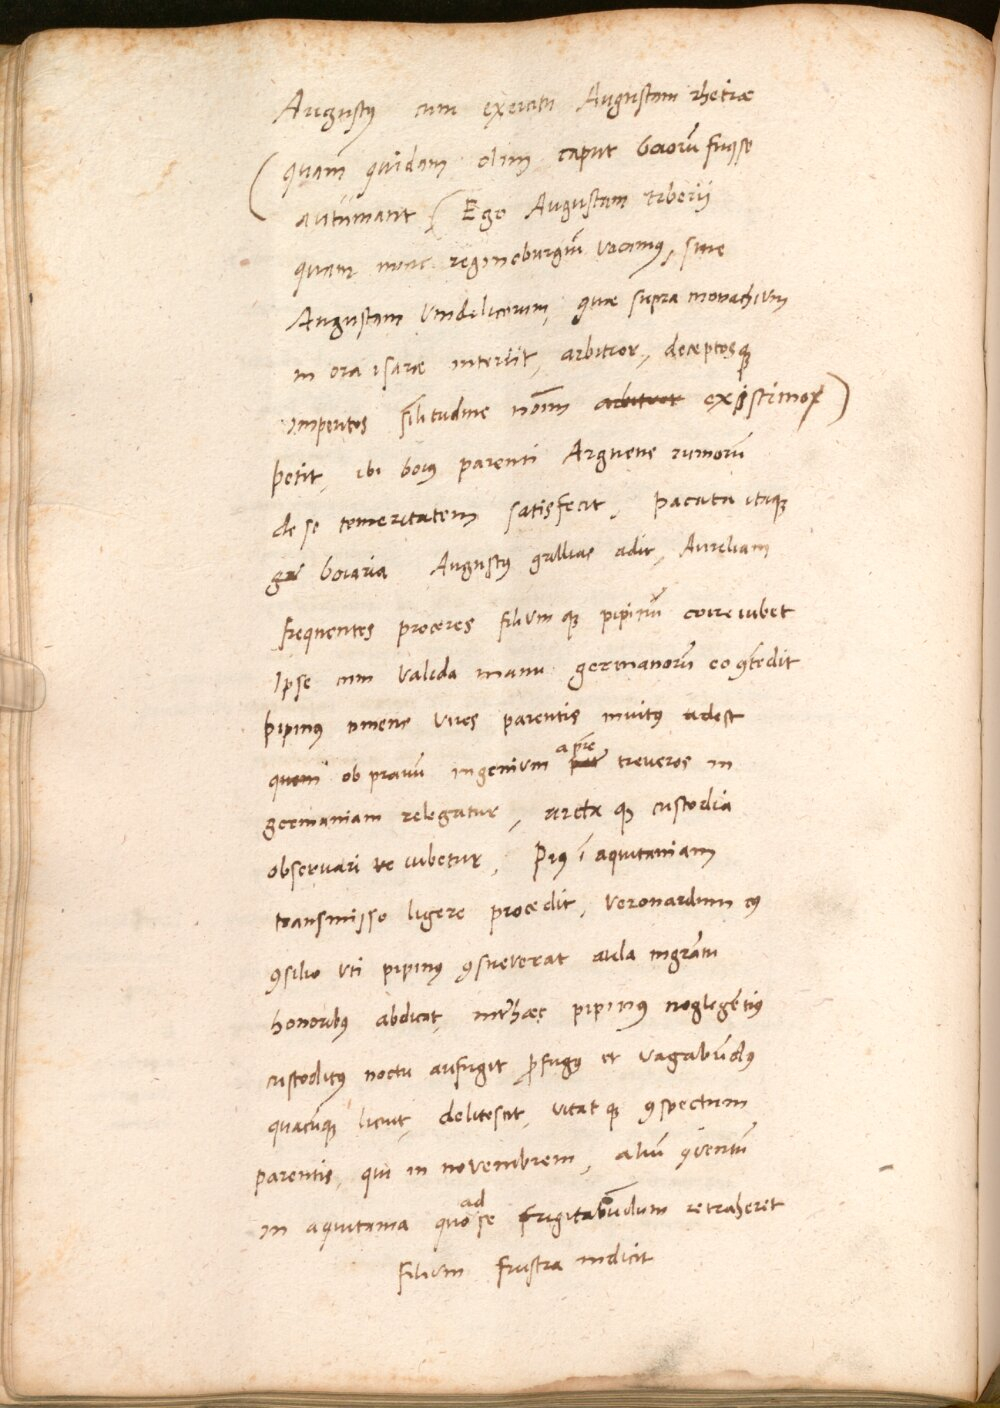 Augustꝰ cum exercitu Augustam rhetiæ
(quam quidam olim caput boiorũ fuisse
autumant ( Ego Augustam tiberii
quam nunc reginoburgiũ vocamꝰ, siue
Augustam vindelicorum, quæ supra monachium
in ora isaræ interiit, arbitror, deceptosq̨
imperitos sĩlitudine noĩm arbitror existimo)
petit, ibi boiꝰ parenti Arguene rumorũ
de se temeritatem satisfecit, pacata itaq̨
boiaria Augustꝰ gallias adit, Aureliam
frequentes proceres filium q̨ pipinũ coire iubet
Ipse cum valida manu germanorũ eo ꝯtẽdit
pipinꝰ timens vires parentis inuitꝰ adest
quem ob prauũ ingenium a pr̃e treueros in
germaniam relegatur, arcta q̨ custodia
obseruari iubetur, Piꝰ ĩ aquitaniam
transmisso ligere procedit, veronardum cꝰ
ꝯsilio vti pipinꝰ ꝯsueuerat aula ingratũ
honoribꝰ abdicat, inter hæc pipinꝰ neglegẽtiꝰ
custoditꝰ noctu aufugit ꝓfugꝰ et vagabũdꝰ
quacũq̨ licuit, delitescit, vitat q̨ ꝯspectum
parentis, qui in novembrem, aliũ ꝯventũ
in aquitania quo ad se fugitabũdum retraheret
filium frustra indicit